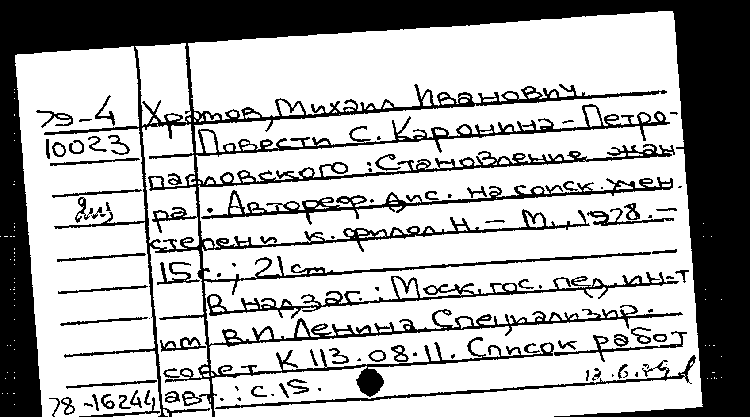 79-4 Храмов, Михаил Иванович.
10023 Повести С. Каронина-Петро-
павловского: Становление жан-
ра. Автореф. дис. на соиск. учен.
степени к. филол. н. — М., 1978. —
15 с.; 21 см.
В надзаг.: Моск. гос. пед. ин-т
им. В.И. Ленина. Специализир.
совет К 113.08.11. Список работ
авт.: с. 15.
78-16244